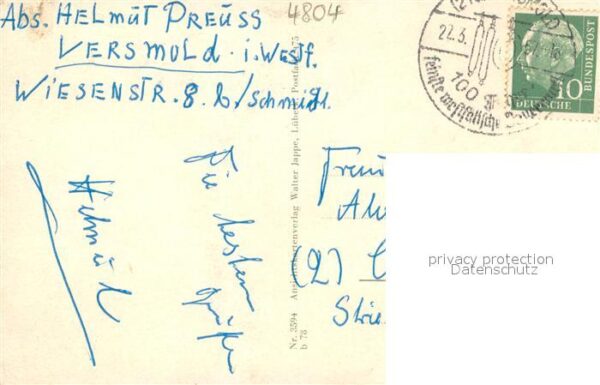 Abs. HELMUT PREUSS
4804
VERSMOLD. i. Westf.
WIESENSTR. 8. b/Schmidt.
22.3.
100
feinste westfälische
10
DEUTSCHE BUNDESPOST
Die besten
Grüße
Helmut
Nr. 3594 Ansichtskartenverlag Walter Jappe, Lübeck, Postfach
b 78
(2)
privacy protection
Datenschutz